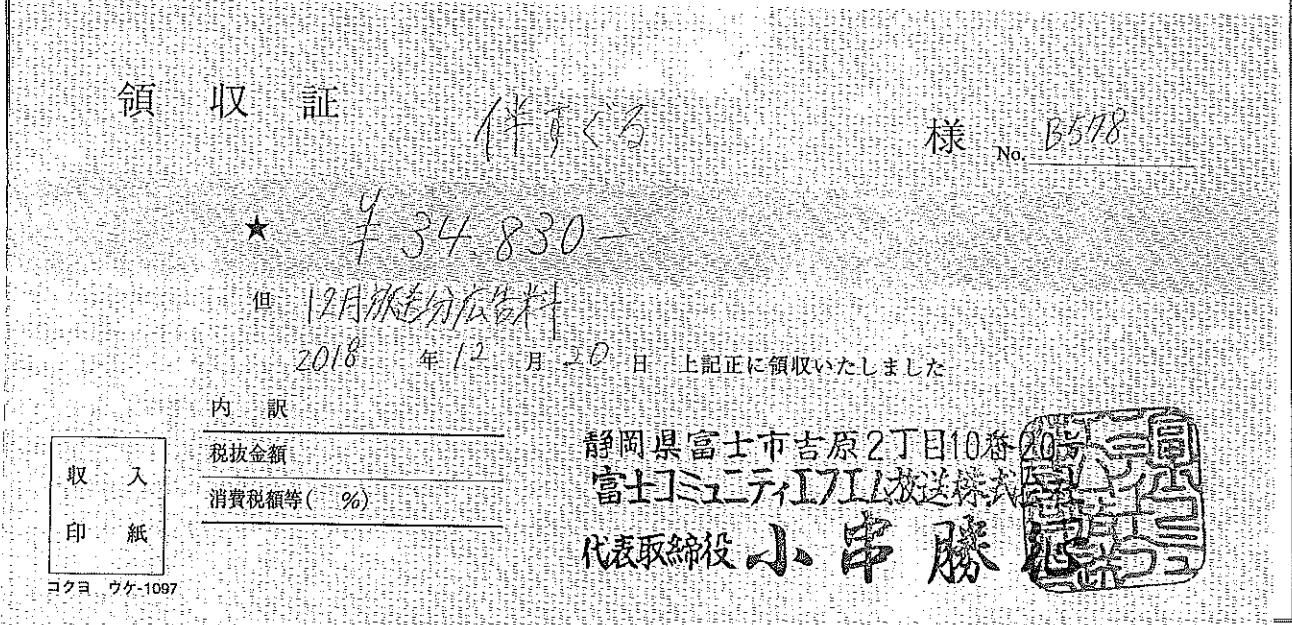 領 収 証
伴すぐる 様 No. B578
★ ¥34,830-
但 12月放送分広告料
2018 年 12 月 20 日 上記正に領収いたしました
内 訳
税抜金額
消費税額等( %)
収 入
印 紙
コクヨ ウケ-1097
静岡県富士市吉原2丁目10番20号
富士コミュニティエフエム放送株式会社
代表取締役 小 串 勝